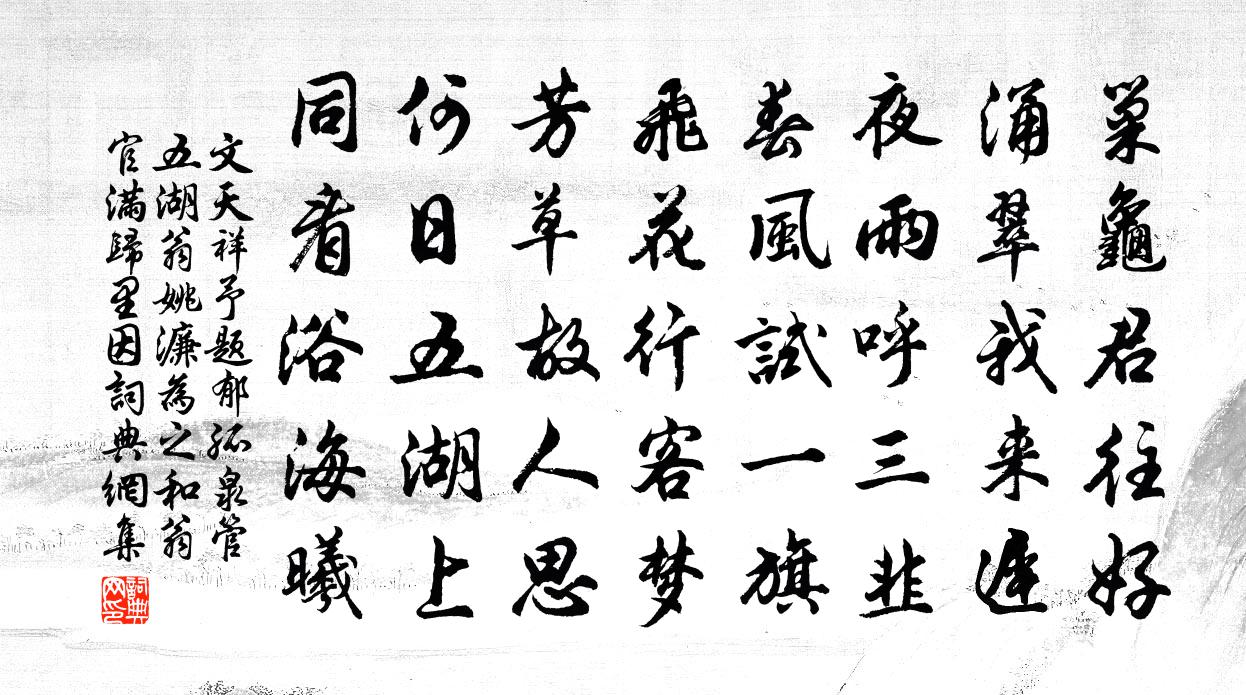 巢龜君往好
涌翠我来遲
夜雨呼三韭
春風試一旗
飛花行客梦
芳草故人思
何日五湖上
同看浴海曦
文天祥予題郁孤泉管
五湖翁姚濂為之和翁
官滿歸里因詞典網集
詞典网印